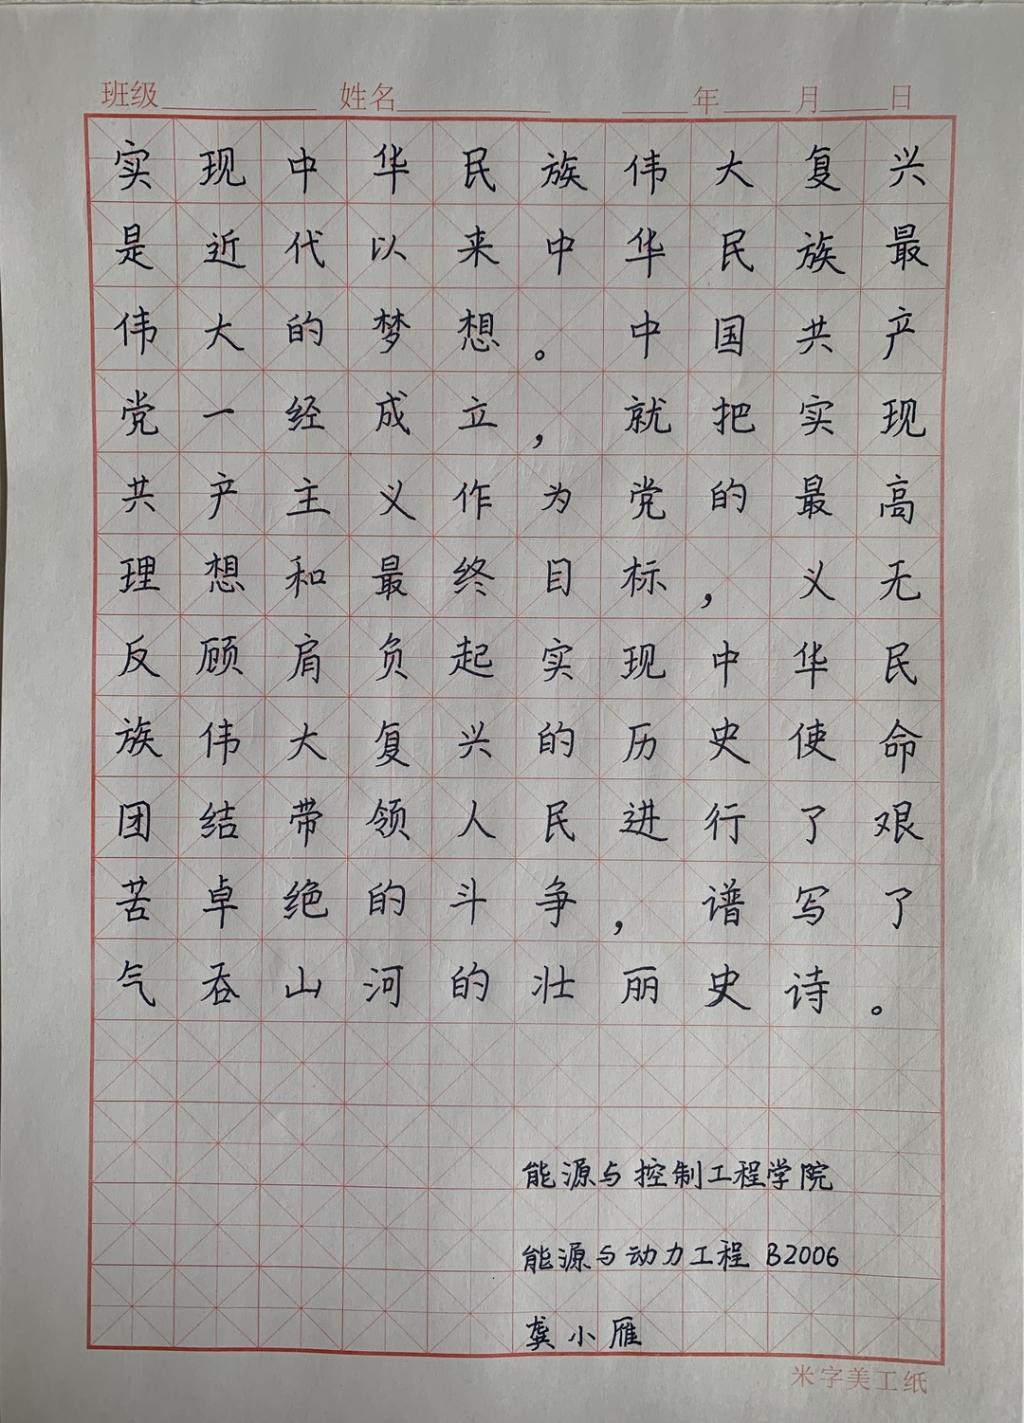 班级 姓名 年 月 日
实现中华民族伟大复兴
是近代以来中华民族最
伟大的梦想。中国共产
党一经成立，就把实现
共产主义作为党的最高
理想和最终目标，义无
反顾肩负起实现中华民
族伟大复兴的历史使命
团结带领人民进行了艰
苦卓绝的斗争，谱写了
气吞山河的壮丽史诗。
能源与控制工程学院
能源与动力工程 B2006
龚小雁
米字美工纸